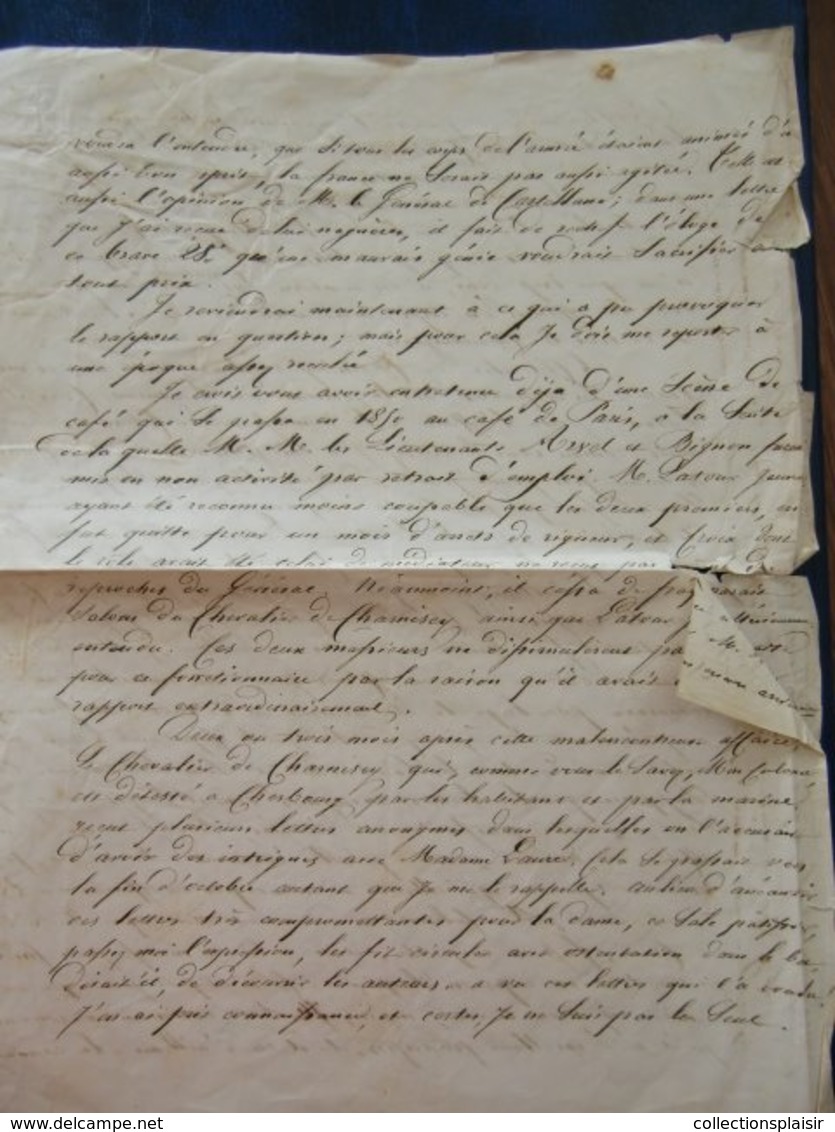 voudra l'entendre, que si tous les corps de l'armée étaient animés d'
aussi bon esprit, la france ne serait pas aussi agitée. Telle est
aussi l'opinion de M. le Général de Castellane; dans une lettre
que j'ai reçue de lui naguères, il fait de l'éloge de
ce brave 28e qu'un mauvais génie voudrait sacrifier
tout prix.
Je reviendrai maintenant à ce qui a pu provoquer
le rapport en question; mais pour cela Je dois me reporter à
une époque assez reculée
Je crois vous avoir entretenu déja d'une Scène de
café qui se passa en 1850 au café de Paris, à la Suite
de la quelle M. M. les Lieutenants et Bignon furent
mis en non activité par retrait d'emploi. M. Latour
ayant été reconnu moins coupable que les deux premiers, en
fut quitte pour un mois d'arrêts de rigueur, et Croix dont
le rôle avait été celui de médiateur ne reçut
reproches du Général. Néanmoins, il cessa de
Salons du Chevalier de Charnisey ainsi que Latour
entendu. Ces deux messieurs ne dissimulèrent pa
pour ce fonctionnaire par la raison qu'il avait
rapport extraordinairement.
Deux ou trois mois après cette malencontreuse affaire,
Le Chevalier de Charnisey qui, comme vous le Savez, Mon Colonel
est détesté à Cherbourg par les habitans et par la marine,
reçut plusieurs lettres anonymes dans lesquelles on l'accusait
d'avoir des intrigues avec Madame Laure. Cela Se passait vers
la fin d'octobre autant que Je me le rappelle. au lieu d'anéantir
ces lettres très compromettantes pour la dame, ce Sale
passez moi l'expression, les fit circuler avec ostentation dans le
disait il, de découvrir les auteurs. a vu ces lettres qui l'a voulu.
J'en ai pris connaissance, et certes, Je ne Suis pas le Seul.
collectionsplaisir